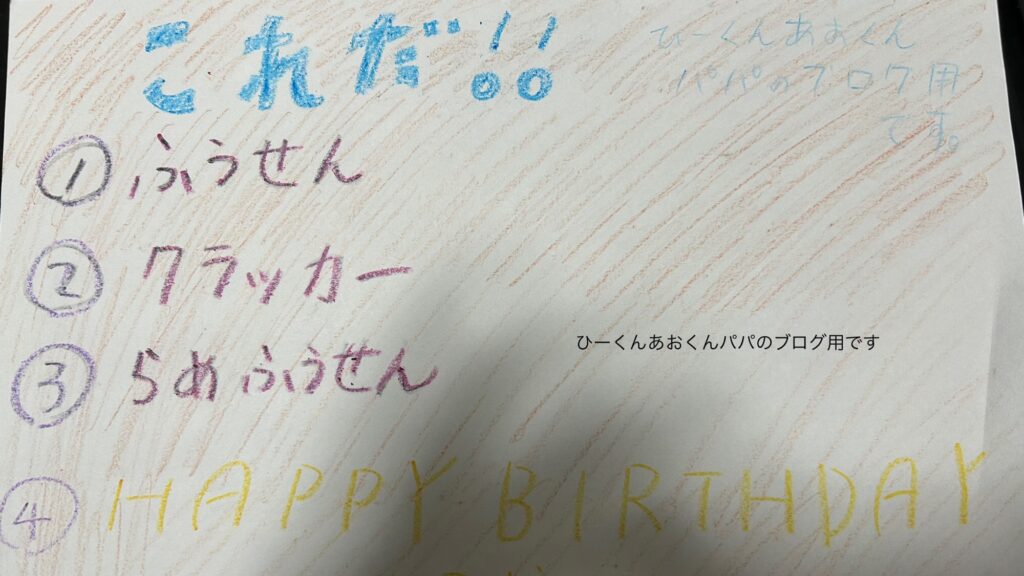 これだ!!
ひーくんあおくん
パパのブログ用
です。
① ふうせん
② クラッカー
③ らめふうせん
ひーくんあおくんパパのブログ用です
④ HAPPY BIRTHDAY